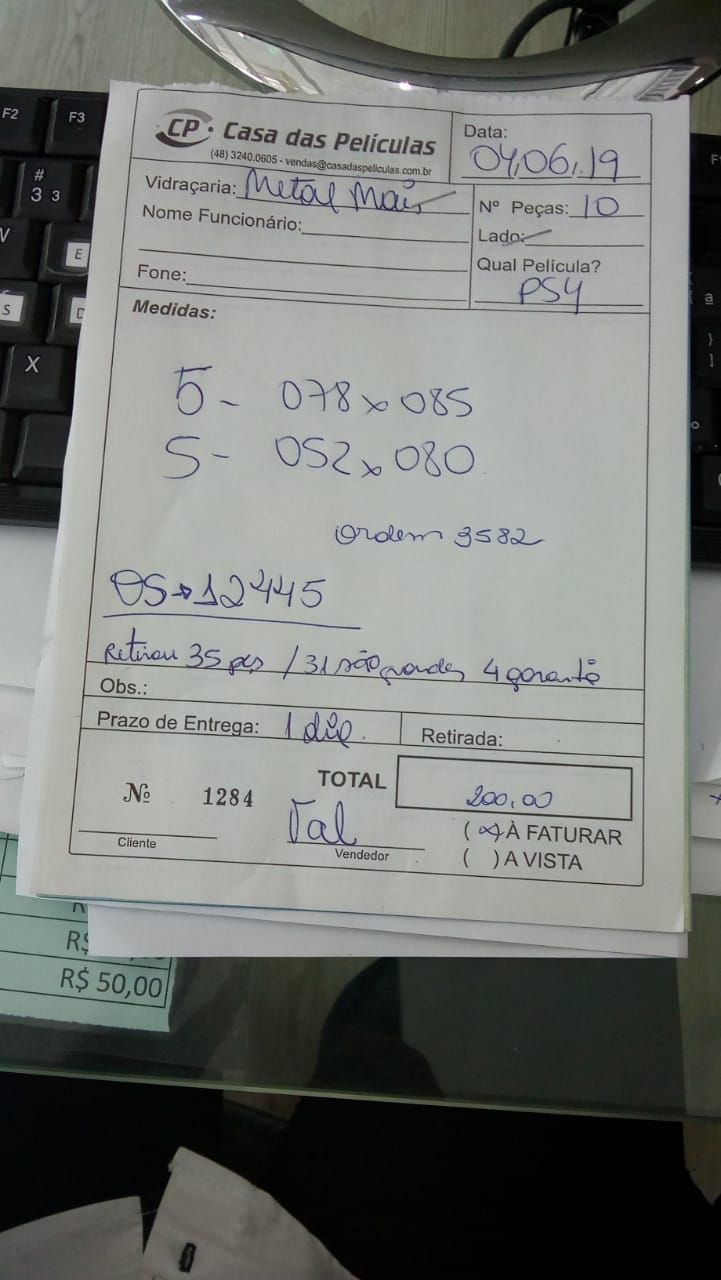 CP. Casa das Películas
(48) 3240.0605 - vendas@casadaspeliculas.com.br
Data: 04,06,19
Vidraçaria: Metal Mais
Nome Funcionário:
Fone:
Nº Peças: 10
Lado:
Qual Película?
PS4
Medidas:
5 - 078 x 085
5 - 052 x 080
Ordem 3582
OS→12445
Retirou 35 pçs / 31 são grandes 4 garantê
Obs.:
Prazo de Entrega: 1 dia.
Retirada:
Nº 1284
TOTAL 200,00
Cliente
Val
Vendedor
(x) À FATURAR
( ) A VISTA
R$
R$ 50,00
F2
F3
#
3 3
E
S
X